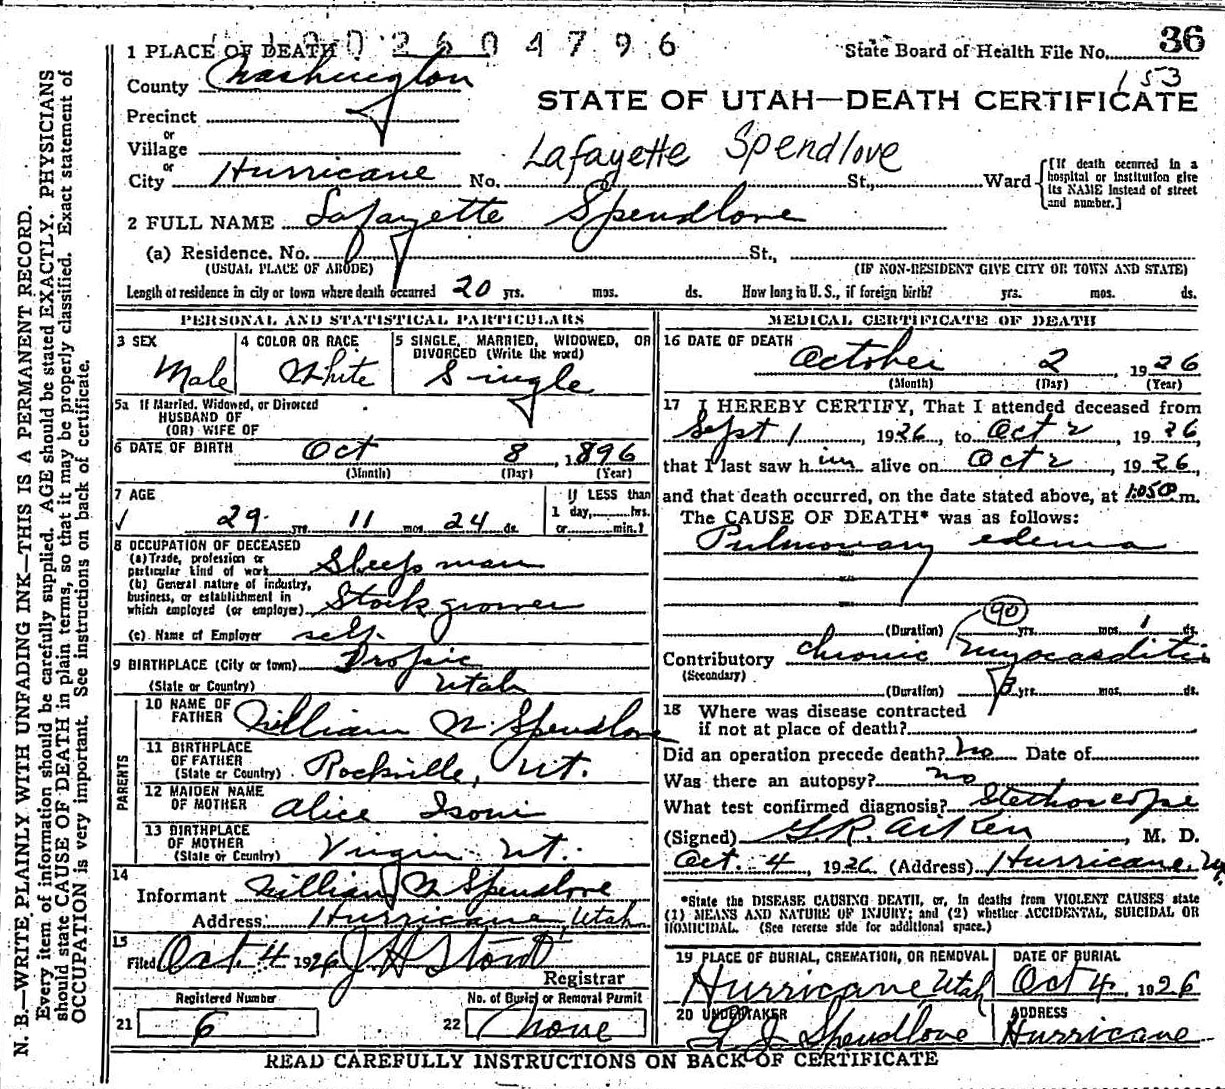 N. B.—WRITE PLAINLY WITH UNFADING INK—THIS IS A PERMANENT RECORD.
Every item of information should be carefully supplied. AGE should be stated EXACTLY. PHYSICIANS
should state CAUSE OF DEATH in plain terms, so that it may be properly classified. Exact statement of
OCCUPATION is very important. See instructions on back of certificate.
1 PLACE OF DEATH 2604796
State Board of Health File No. 36
153
County Washington
STATE OF UTAH—DEATH CERTIFICATE
Precinct
or
Village
Lafayette Spendlove
or
City Hurricane No. St., Ward
[If death occurred in a
hospital or institution give
its NAME instead of street
and number.]
2 FULL NAME Lafayette Spendlove
(a) Residence. No. St.,
(USUAL PLACE OF ABODE) (IF NON-RESIDENT GIVE CITY OR TOWN AND STATE)
Length of residence in city or town where death occurred 20 yrs. mos. ds. How long in U. S., if foreign birth? yrs. mos. ds.
PERSONAL AND STATISTICAL PARTICULARS
3 SEX
Male
4 COLOR OR RACE
White
5 SINGLE, MARRIED, WIDOWED, OR
DIVORCED (Write the word)
Single
5a If Married, Widowed, or Divorced
HUSBAND OF
(OR) WIFE OF
6 DATE OF BIRTH Oct 8, 1896
(Month) (Day) (Year)
7 AGE
29 yrs. 11 mos. 24 ds.
If LESS than
1 day, hrs.
or min.?
8 OCCUPATION OF DECEASED
(a) Trade, profession or
particular kind of work Sheep man
(b) General nature of industry,
business, or establishment in
which employed (or employer) Stock grower
(c) Name of Employer self.
9 BIRTHPLACE (City or town) Tropic
(State or Country) Utah
PARENTS
10 NAME OF
FATHER William N. Spendlove
11 BIRTHPLACE
OF FATHER
(State or Country) Rockville, Ut.
12 MAIDEN NAME
OF MOTHER Alice Isom
13 BIRTHPLACE
OF MOTHER
(State or Country) Virgin Ut.
14
Informant William N Spendlove
Address Hurricane, Utah
15
Filed Oct. 4 1926 J H Stout
Registrar
Registered Number
21 6
No. of Burial or Removal Permit
22 None
MEDICAL CERTIFICATE OF DEATH
16 DATE OF DEATH
October 2, 1926
(Month) (Day) (Year)
17 I HEREBY CERTIFY, That I attended deceased from
Sept 1, 1926, to Oct 2, 1926
that I last saw him alive on Oct 2, 1926,
and that death occurred, on the date stated above, at m.
The CAUSE OF DEATH* was as follows:
Pulmonary edema
90
(Duration) yrs. mos. 1 ds.
Contributory chronic myocarditis
(Secondary)
(Duration) yrs. mos. ds.
18 Where was disease contracted
if not at place of death?
Did an operation precede death? No Date of
Was there an autopsy? no
What test confirmed diagnosis? Stethoscope
(Signed) G.R. Aiken, M. D.
Oct. 4, 1926 (Address) Hurricane, Ut.
*State the DISEASE CAUSING DEATH, or, in deaths from VIOLENT CAUSES state
(1) MEANS AND NATURE OF INJURY; and (2) whether ACCIDENTAL, SUICIDAL OR
HOMICIDAL. (See reverse side for additional space.)
19 PLACE OF BURIAL, CREMATION, OR REMOVAL
Hurricane Utah
DATE OF BURIAL
Oct 4, 1926
20 UNDERTAKER
Spendlove
ADDRESS
Hurricane
READ CAREFULLY INSTRUCTIONS ON BACK OF CERTIFICATE